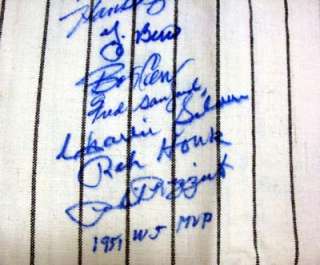 Y. Berra
Bob Cerv
Fred Sanford
Charlie Silvera
Ralph Houk
Phil Rizzuto
1951 WS MVP